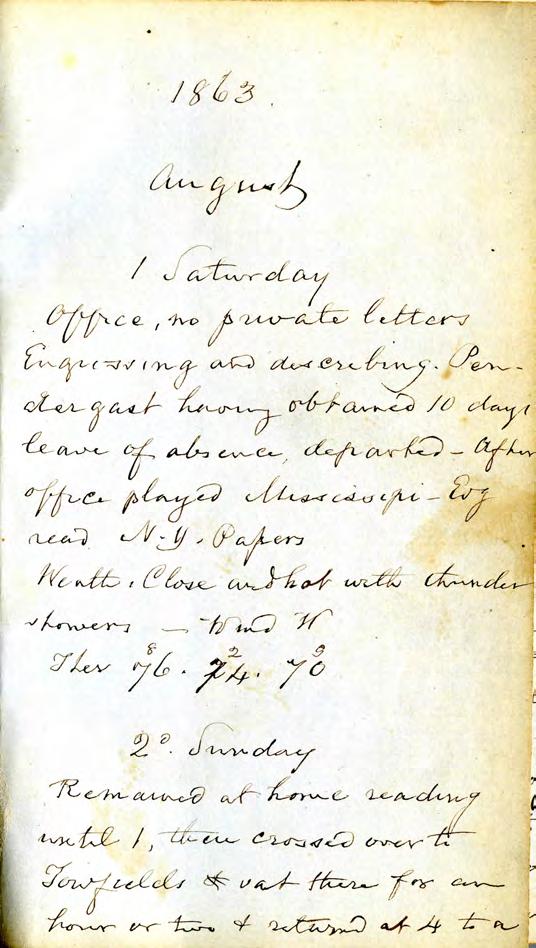 1863.
August
1 Saturday
Office, no private letters
Engrossing and describing. Pen-
dergast having obtained 10 days
leave of absence, departed - After
office played Mississipi - Evg
read N.Y. Papers
Weath. Close and hot with thunder
showers - Wind W
Ther 76. 74. 70
2d. Sunday
Remained at home reading
until 1, then crossed over to
Towfields & sat there for an
hour or two & returned at 4 to a